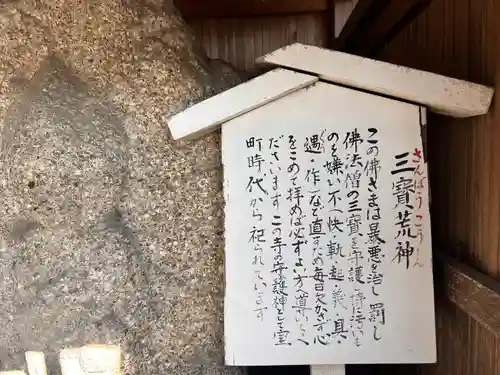 三寳荒神
さんぼうこうじん
この佛さまは暴悪を治し罰し
佛法僧の三寳を守護
のを嫌い不快・
・作一など直すため毎日欠かさず心
をこめて拝めば必ずよい方へ導いて
ださいます この寺の守護神として室
町時代から祀られています